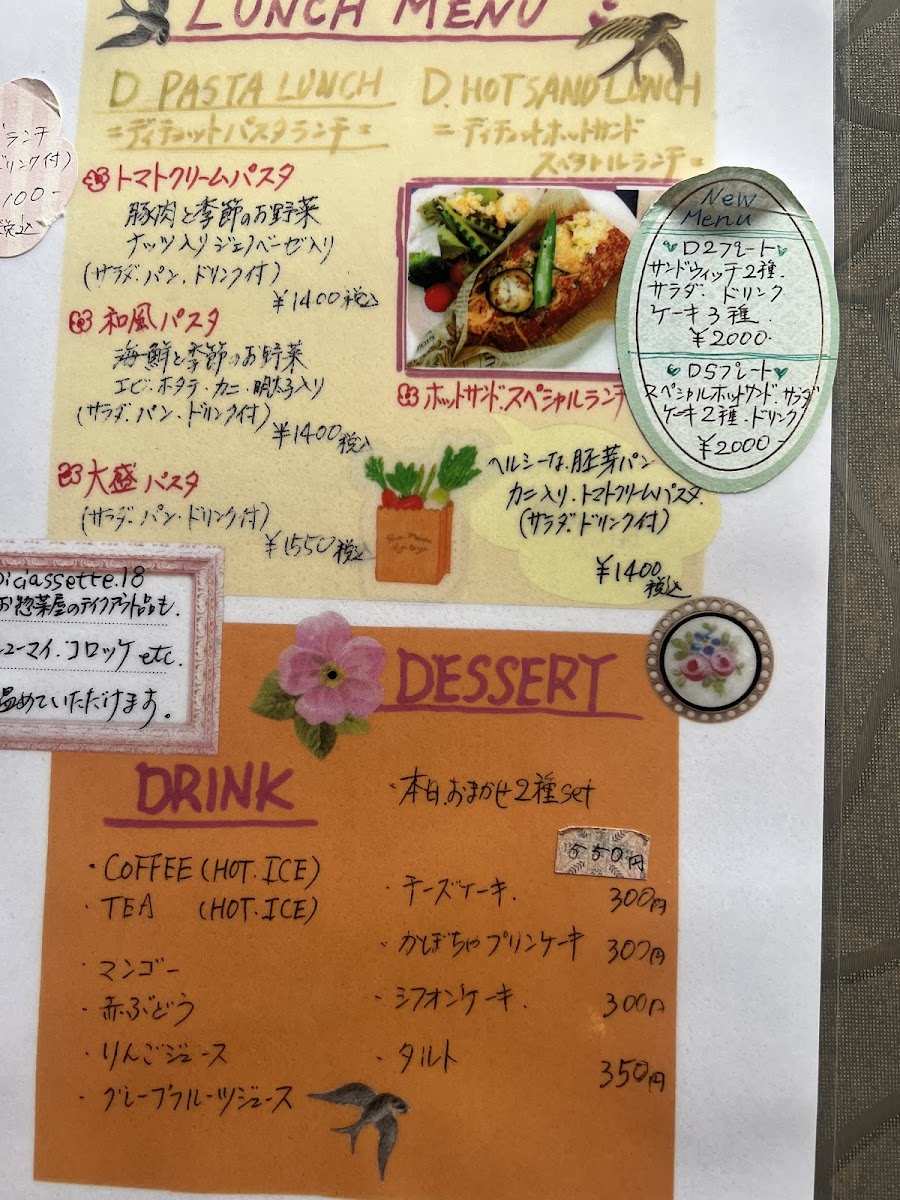 LUNCH MENU
D PASTA LUNCH
=ディチェットパスタランチ=
トマトクリームパスタ
豚肉と季節のお野菜
ナッツ入りジェノベーゼ入り
(サラダ.パン.ドリンク付)
¥1400税込
和風パスタ
海鮮と季節のお野菜
エビ・ホタテ・カニ・明太子入り
(サラダ.パン.ドリンク付)
¥1400税込
大盛パスタ
(サラダ.パン.ドリンク付)
¥1550税込
D.HOTSAND LUNCH
=ディチェットホットサンド
スペシャルランチ=
ホットサンド.スペシャルランチ
ヘルシーな.胚芽パン
カニ入り.トマトクリームパスタ.
(サラダ.ドリンク付)
¥1400
税込
New
Menu
D2プレート
サンドウィッチ2種.
サラダ. ドリンク
ケーキ3種.
¥2000-
DSプレート
スペシャルホットサンド.サラダ
ケーキ2種.ドリンク
¥2000-
ランチ
ドリンク付)
100-
税込
iciassette.18
お惣菜屋のテイクアウト品も.
ューマイ.コロッケetc.
温めていただけます。
DRINK
・COFFEE(HOT.ICE)
・TEA (HOT.ICE)
・マンゴー
・赤ぶどう
・りんごジュース
・グレープフルーツジュース
DESSERT
・本日.おまかせ2種set
550円
・チーズケーキ. 300円
・かぼちゃプリンケーキ 300円
・シフォンケーキ. 300円
・タルト 350円